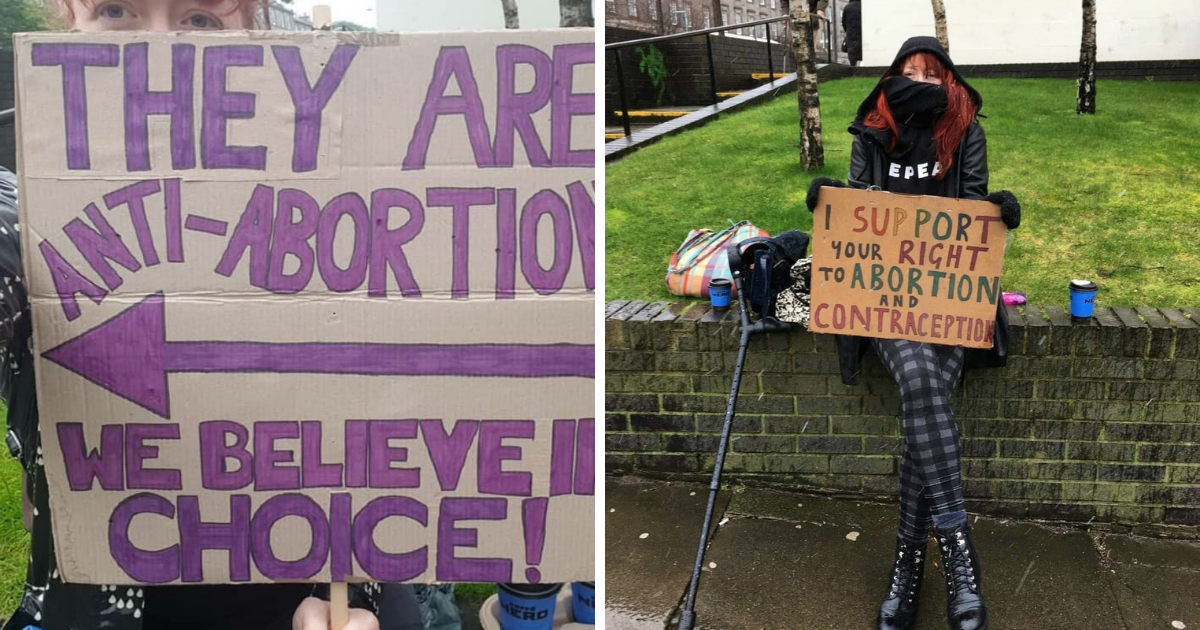 THEY ARE
ANTI-ABORTION
WE BELIEVE
CHOICE!
CAFFÈ
NERO
EPEA
I SUPPORT
YOUR RIGHT
TO ABORTION
AND
CONTRACEPTION